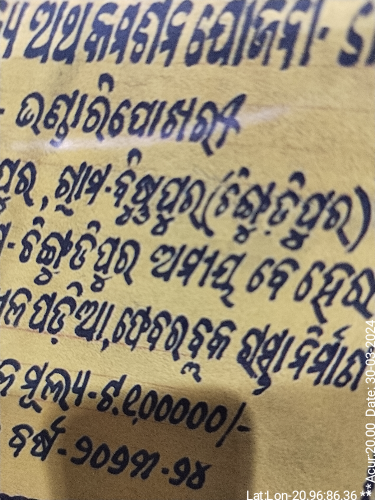 ଅର୍ଥ କମିଶନ ଯୋଜନା-
- ଭଣ୍ଡାରିପୋଖରୀ
ପୁର, ଗ୍ରାମ-ବିଷ୍ଣୁପୁର(ଚିଙ୍ଗୁଡ଼ିପୁର)
-ଚିଙ୍ଗୁଡିପୁର ଅମୀୟ ବେହେରା
ପଡ଼ିଆ, ଫେବରବ୍ଲକ ରାସ୍ତା ନିର୍ମାଣ
ମୂଲ୍ୟ-ଟ.୧,୦୦୦୦୦/-
ବର୍ଷ-୨୦୨୩-୨୪
Lat:Lon -20.96:86.36
**Acur:20.00 Date: 30-03-2024